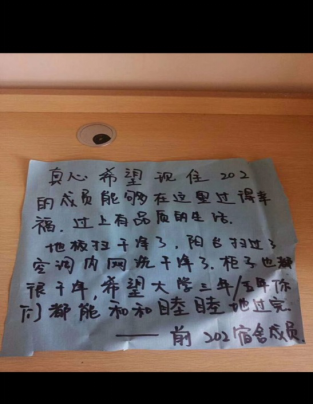 真心希望现住202
的成员能够在这里过得幸
福，过上有品质的生活.
地板扫干净了，阳台扫过了
空调内网洗干净了.柜子也被
很干净,希望大学三年/五年你
们都能和和睦睦地过完.
——前202宿舍成员.